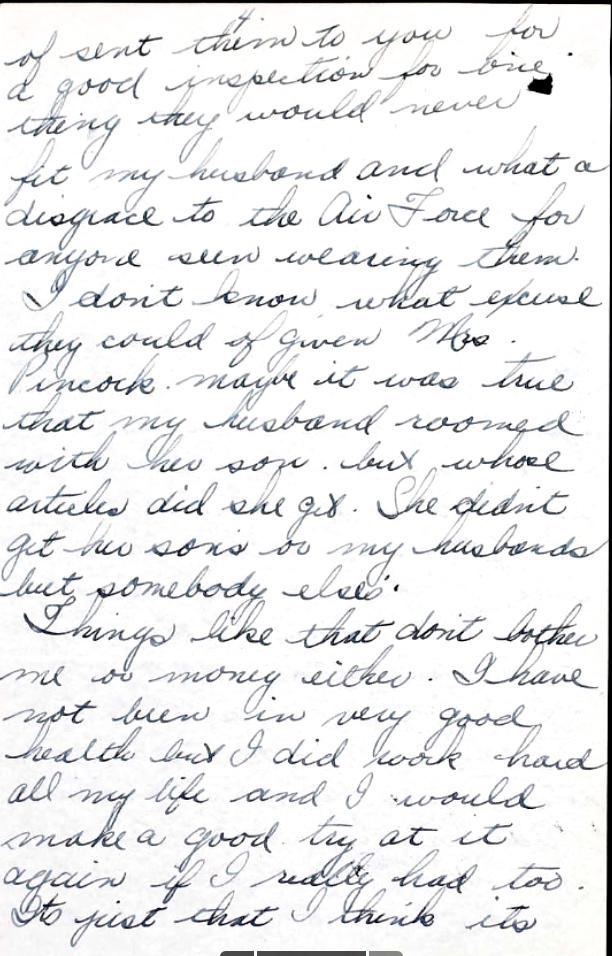 4
of sent them to you for
a good inspection for one
thing they would never
fit my husband and what a
disgrace to the Air Force for
anyone seen wearing them.
I don't know what excuse
they could of given Mrs.
Pincock. maybe it was true
that my husband roomed
with her son. but whose
articles did she get. She didn't
get her son's or my husbands
but somebody else's.
Things like that don't bother
me or money either. I have
not been in very good
health but I did work hard
all my life and I would
make a good try at it
again if I really had too.
Its just that I think its